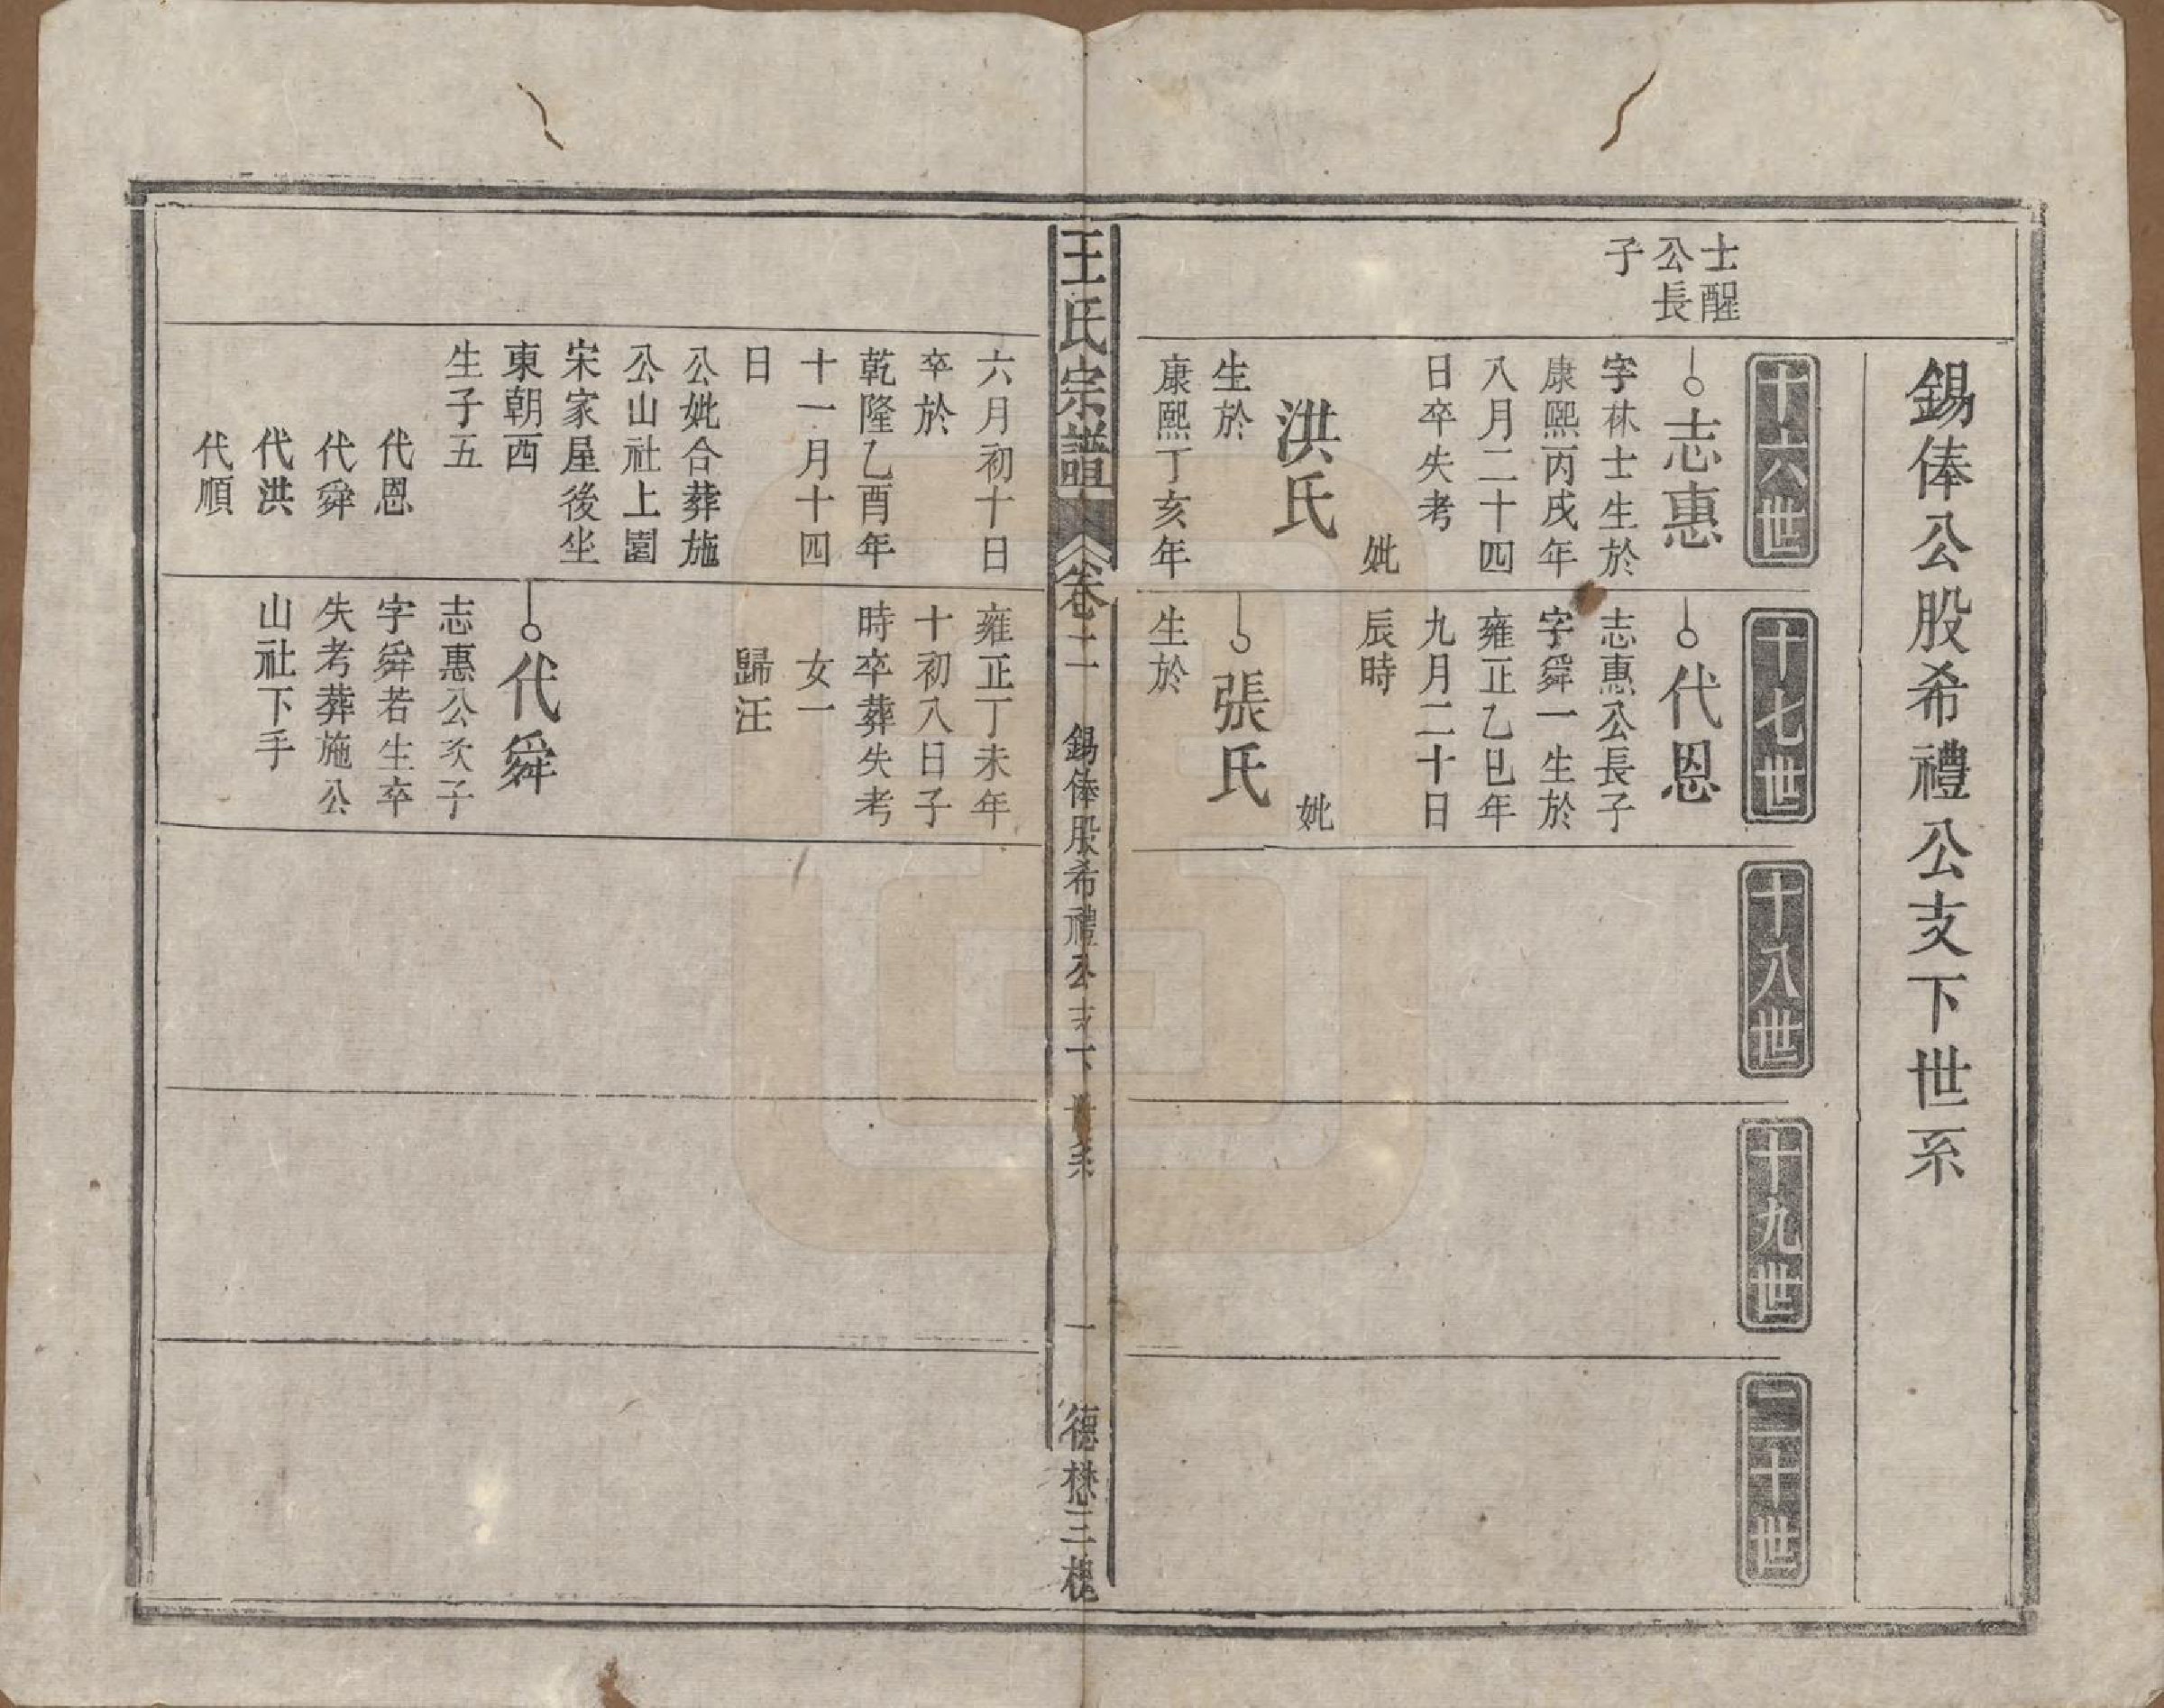 錫俸公股希禮公支下世系
十六世
十七世
十八世
十九世
二十世
士醒
公長
子
志惠
字林士生於
康熙丙戌年
八月二十四
日卒失考
妣
洪氏
生於
康熙丁亥年
六月初十日
卒於
乾隆乙酉年
十一月十四
日
公妣合葬施
公山社上園
宋家屋後坐
東朝西
生子五
代恩
代舜
代洪
代順
代恩
志惠公長子
字舜一生於
雍正乙巳年
九月二十日
辰時
妣
張氏
生於
雍正丁未年
十初八日子
時卒葬失考
女一
歸汪
代舜
志惠公次子
字舜若生卒
失考葬施公
山社下手
王氏宗譜
卷二
錫俸股希禮公支下世系
一
德懋三槐